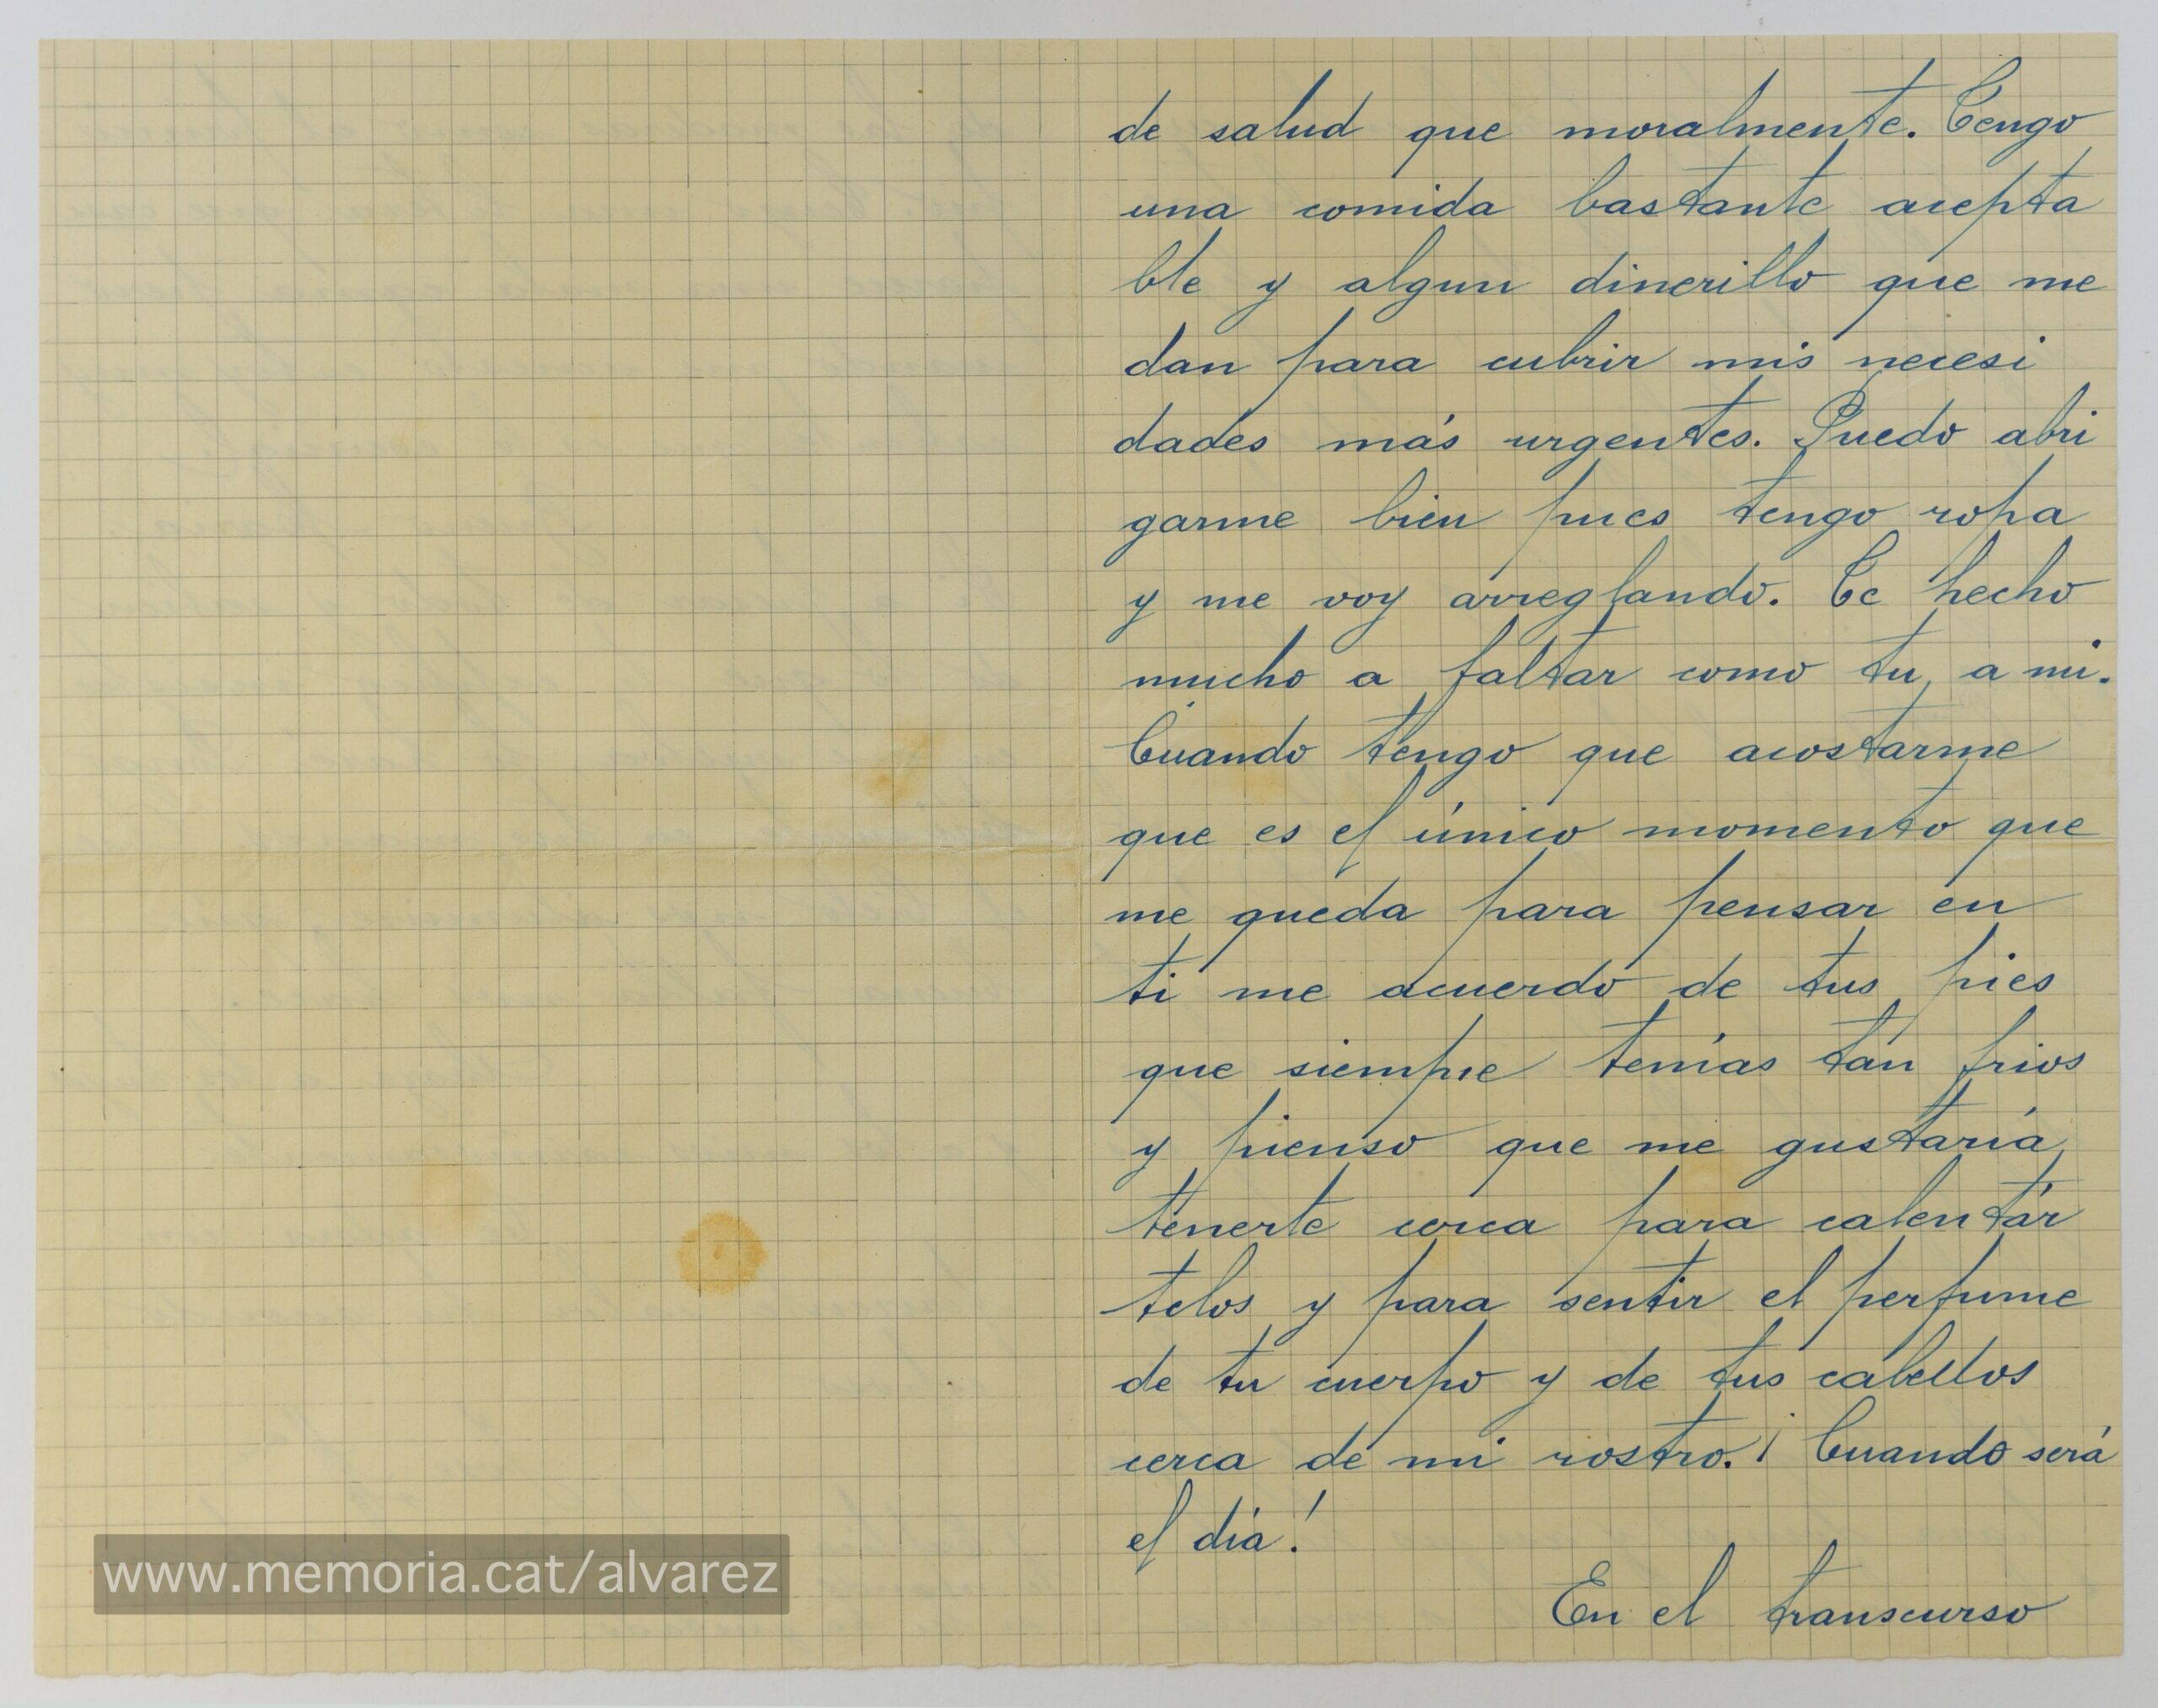 de salud que moralmente. Tengo
una comida bastante acepta
ble y algun dinerillo que me
dan para cubrir mis necesi
dades más urgentes. Puedo abri
garme bien pues tengo ropa
y me voy arreglando. Te hecho
mucho a faltar como tu a mi.
Cuando tengo que acostarme
que es el único momento que
me queda para pensar en
ti me acuerdo de tus pies
que siempre tenías tan frios
y pienso que me gustaría
tenerte cerca para calentár
telos y para sentir el perfume
de tu cuerpo y de tus cabellos
cerca de mi rostro. ¡Cuando será
el día!
En el transcurso
www.memoria.cat/alvarez